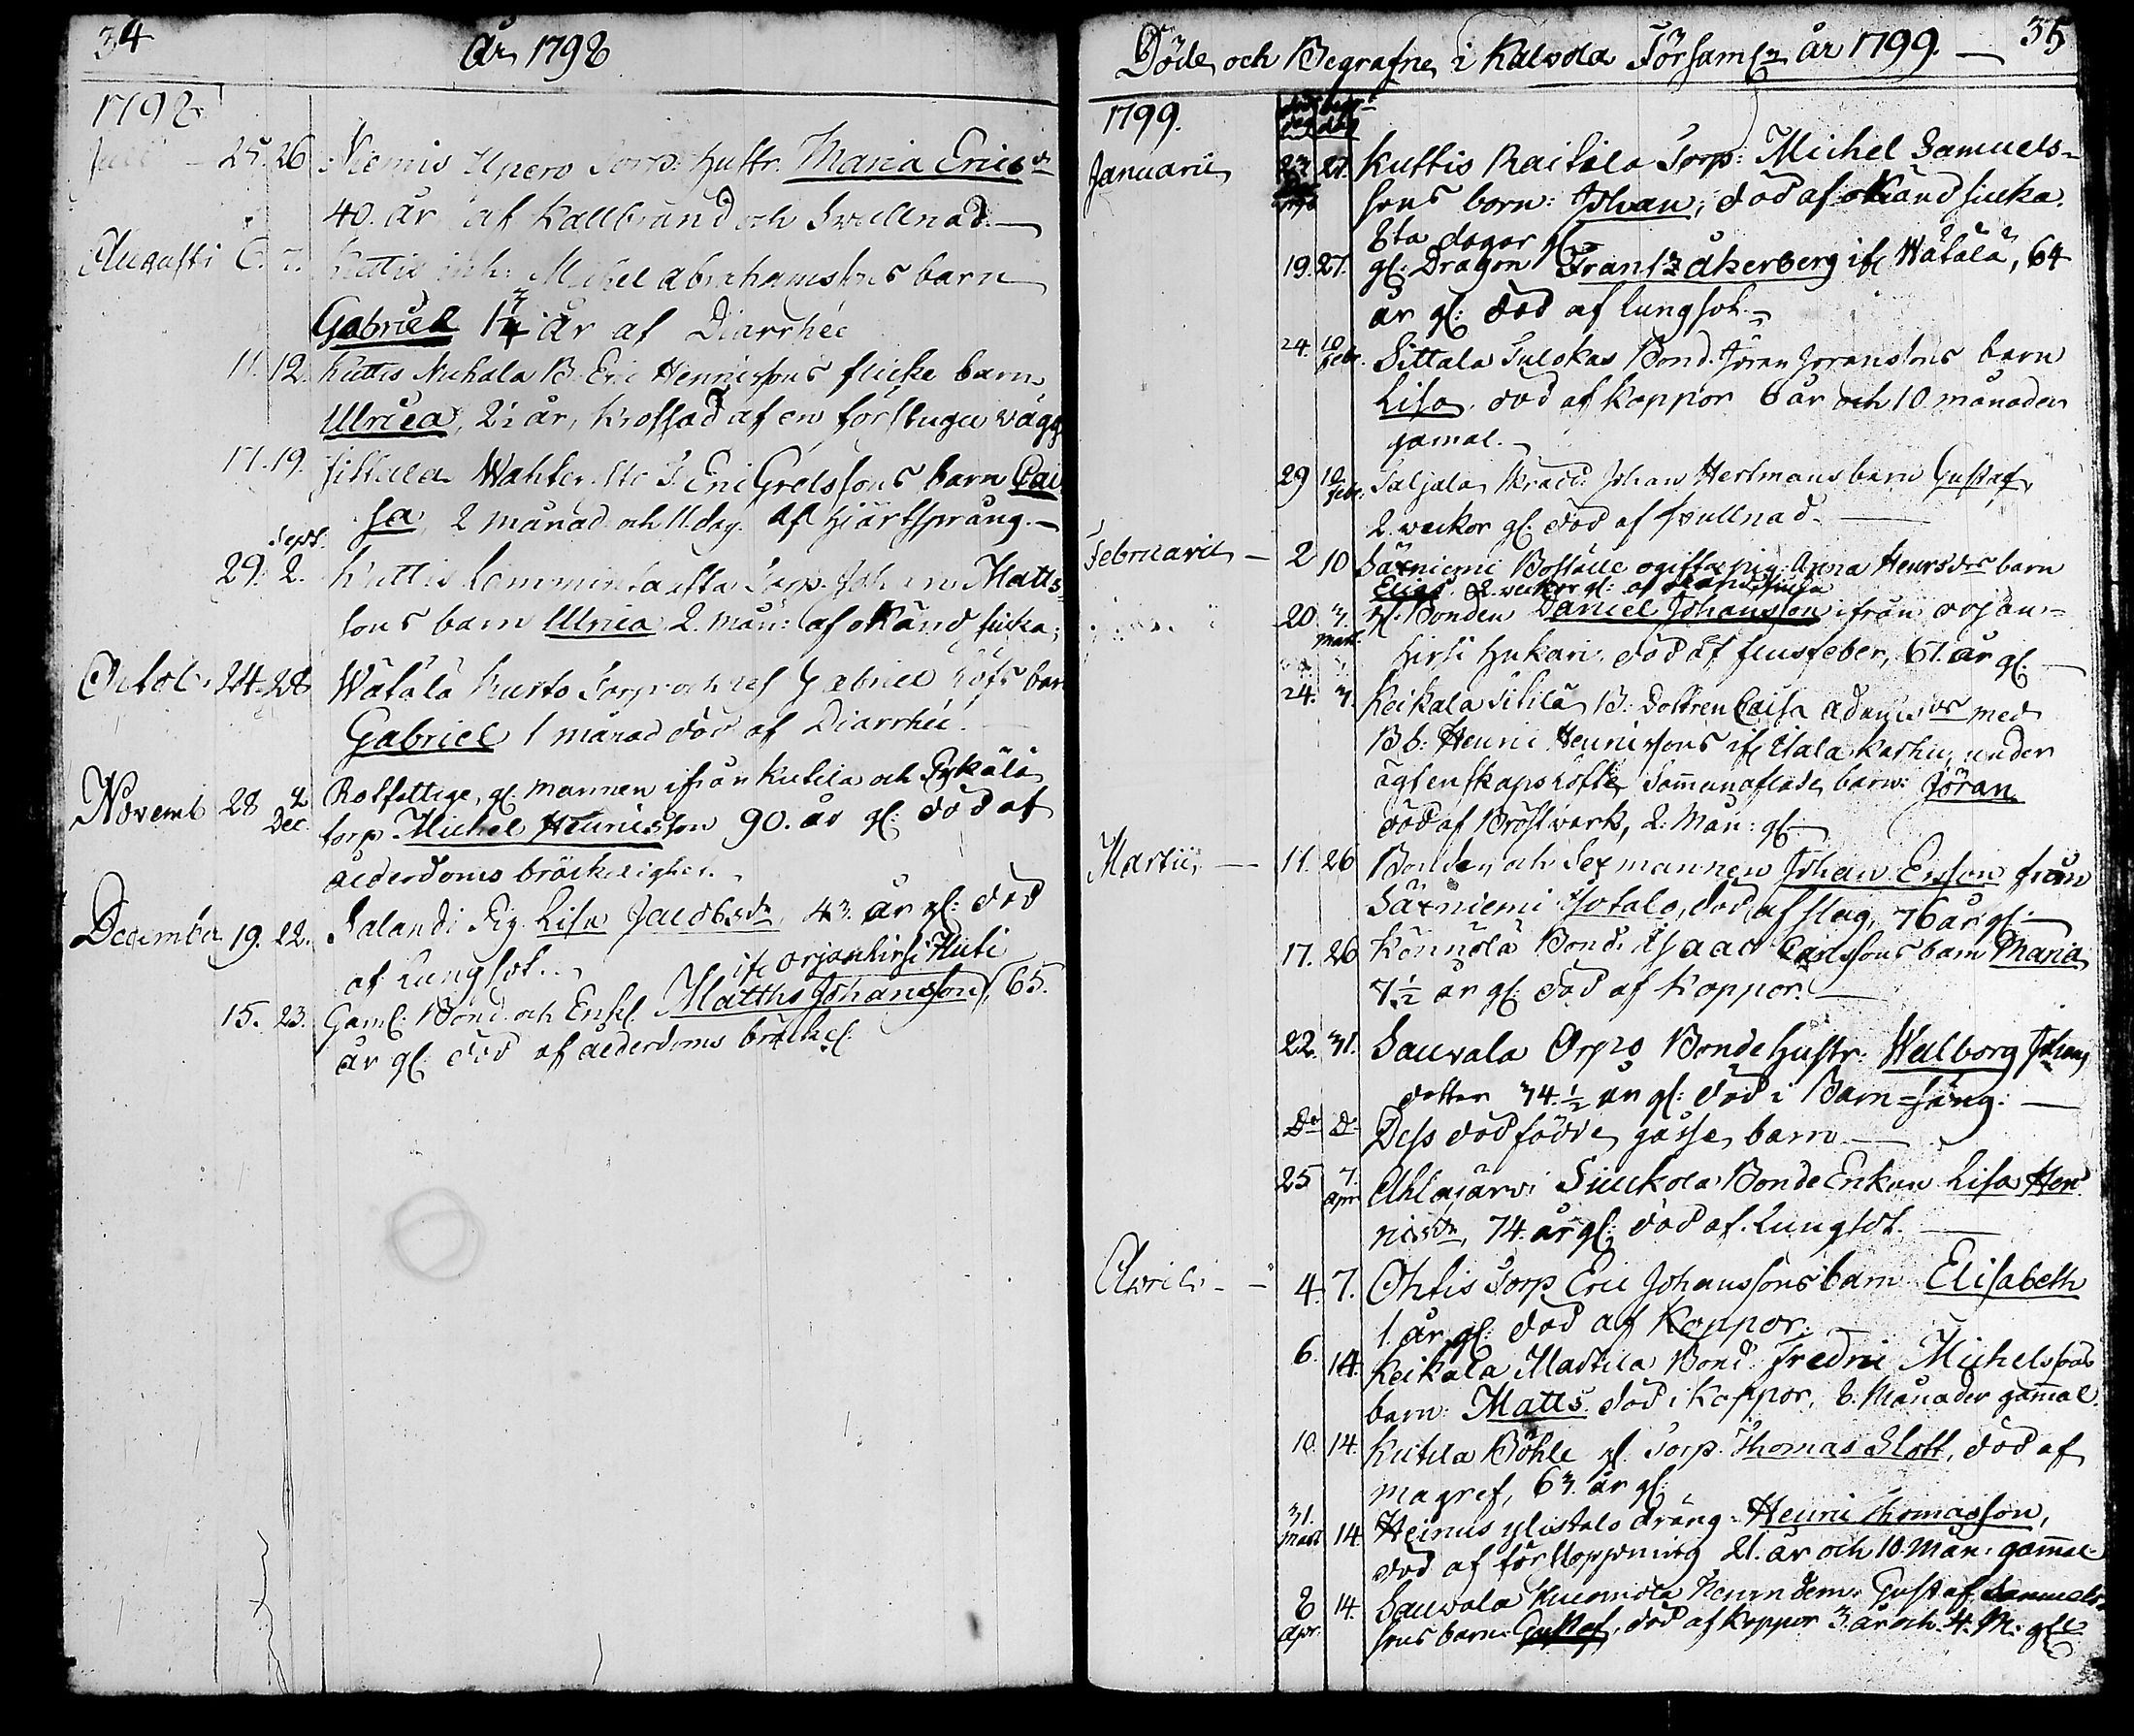 34
År 1798
1798
Juli 25. 26. Niemis Upero Torp: Hustr. Maria Ericsdr
40. år af Kallbrand och Swullnad. —
Augusti 6. 7. Kuttis inh: Michel Abrahamssons barn
Gabriel 1¾ år af Diarrhée
11. 12. Kuttis Nuhala B. Eric Henricssons flicke barn
Ulrica, 2½ år, krossad af en forstugu vägg
17. 19. Sittala Eric Grelssons barn Cai
sa, 2 månad och 11. dag. af hjärtsprång. —
Sept.
29. 2. Kuttis Torp. Johan Matts
sons barn Ulrica 2. mån: af okänd siuka;
Octob: 24. 28 Wätälä Kurto Torp Gabriel barn
Gabriel 1 månad död af Diarrhée.
Novemb 28 2 Dec. Rotfattige, gl. mannen ifrån Kutila och Pykälä
torp. Michel Henricsson 90. år gl: död af
ålderdoms bräcklighet.
December 19. 22. Salandi Pig. Lisa Jacobsdr 43. år gl: död
af Lungsot.
ifr Orjanhirsi Huti
15. 23. Gaml: Bond. och Enkl. Matths Johansson, 65.
år gl: död af ålderdoms bräckl:
Döde och Begrafne i Kalvola Församl: år 1799. — 35
1799. död dag begr: dag
Januarii 23 27. Kuttis Raitala Torp: Michel Samuels=
sons born: Johan; död af okänd siuka.
8ta dagar gl:
19. 27. gl: Dragon Frantz Åkerberg ifr Wätälä, 64
år gl: död af lungsot. —
24. 10 febr. Sittala Bond. Jöran Joransons barn
Lisa, död af koppor 6 år och 10 månader
gamal. —
29 10 febr. Taljala Johan Hertmans barn Gustaf,
2. weckor gl: död af swullnad. —
Februarii — 2 10 Säxniemi Boställe ogifta pig: Anna Henrsdrs barn
Elias. 2. weckor gl: af okänd siuka
20. 3. Mart. gl: Bonden Daniel Johansson ifrån orjan=
hirsi Hukari, död af flusfeber, 61. år gl: —
24. 3. Keikala Sitilä B: Dottren Caisa Adamsdr med
B b: Henric Henricssons ifr Itala Karhu, under
ägtenskapslöfte Sammanaflade barn: Jöran
död af Bröstwärk, 2: Mån: gl: —
Martii, — 11. 26 Bonden och Sexmannen Johan Ersson från
Säxniemi Isotalo, död af slag, 76 år gl: —
17. 26 Könnölä Bond: Isaac Carlssons barn Maria
7½ år gl: död af Koppor. —
22. 31. Sauvala Orpo Bonde Hustr: Walborg Johans
dotter 34.½ år gl: död i Barn=säng: —
Do Do Dess dödfödde gåsse barn —
25 7. Apr Ahlajärvi Siuckola Bonde Enkan Lisa Hen
ricsdr, 74. år gl: död af Lungsot. —
Aprilis — 4. 7. Ohtis Torp Eric Johanssons barn Elisabeth
1. år gl: död af Koppor. —
6. 14. Keikala Marttila Bond Fredric Michelssons
barn: Matts. död i Koppor, 8. Månader gamal.
10. 14. Kutila Böhle gl. Torp. Thomas Slott, död af
magref, 63. år gl:
31. Mart 14. Heinus ylistalo dräng: Henric Thomasson,
död af förstoppning 21. år och 10. Mån: gamal
8 Apr. 14. Sauvala Gustaf Samuels=
sons barn: Gustaf, död af Koppor 3. år och 4. M: gl: